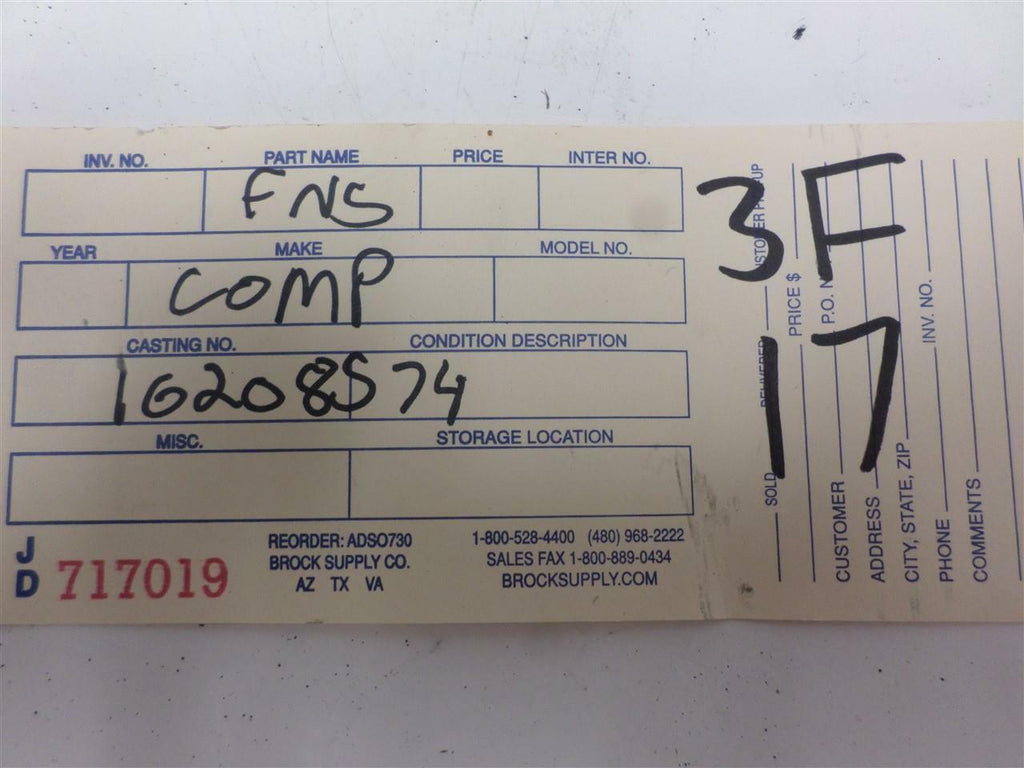 INV. NO. PART NAME PRICE INTER NO.
FNS
YEAR MAKE MODEL NO.
COMP
CASTING NO. CONDITION DESCRIPTION
16208574
MISC. STORAGE LOCATION
JD 717019
REORDER: ADSO730
BROCK SUPPLY CO.
AZ TX VA
1-800-528-4400 (480) 968-2222
SALES FAX 1-800-889-0434
BROCKSUPPLY.COM
3F
17
SOLD DELIVERED
PRICE $
CUSTOMER P.O.
ADDRESS
CITY, STATE, ZIP
PHONE INV. NO.
COMMENTS